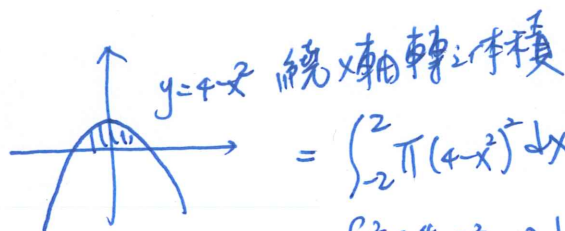 y=4-x² 繞x軸轉之体積
= ∫_{-2}^{2} π(4-x²)² dx